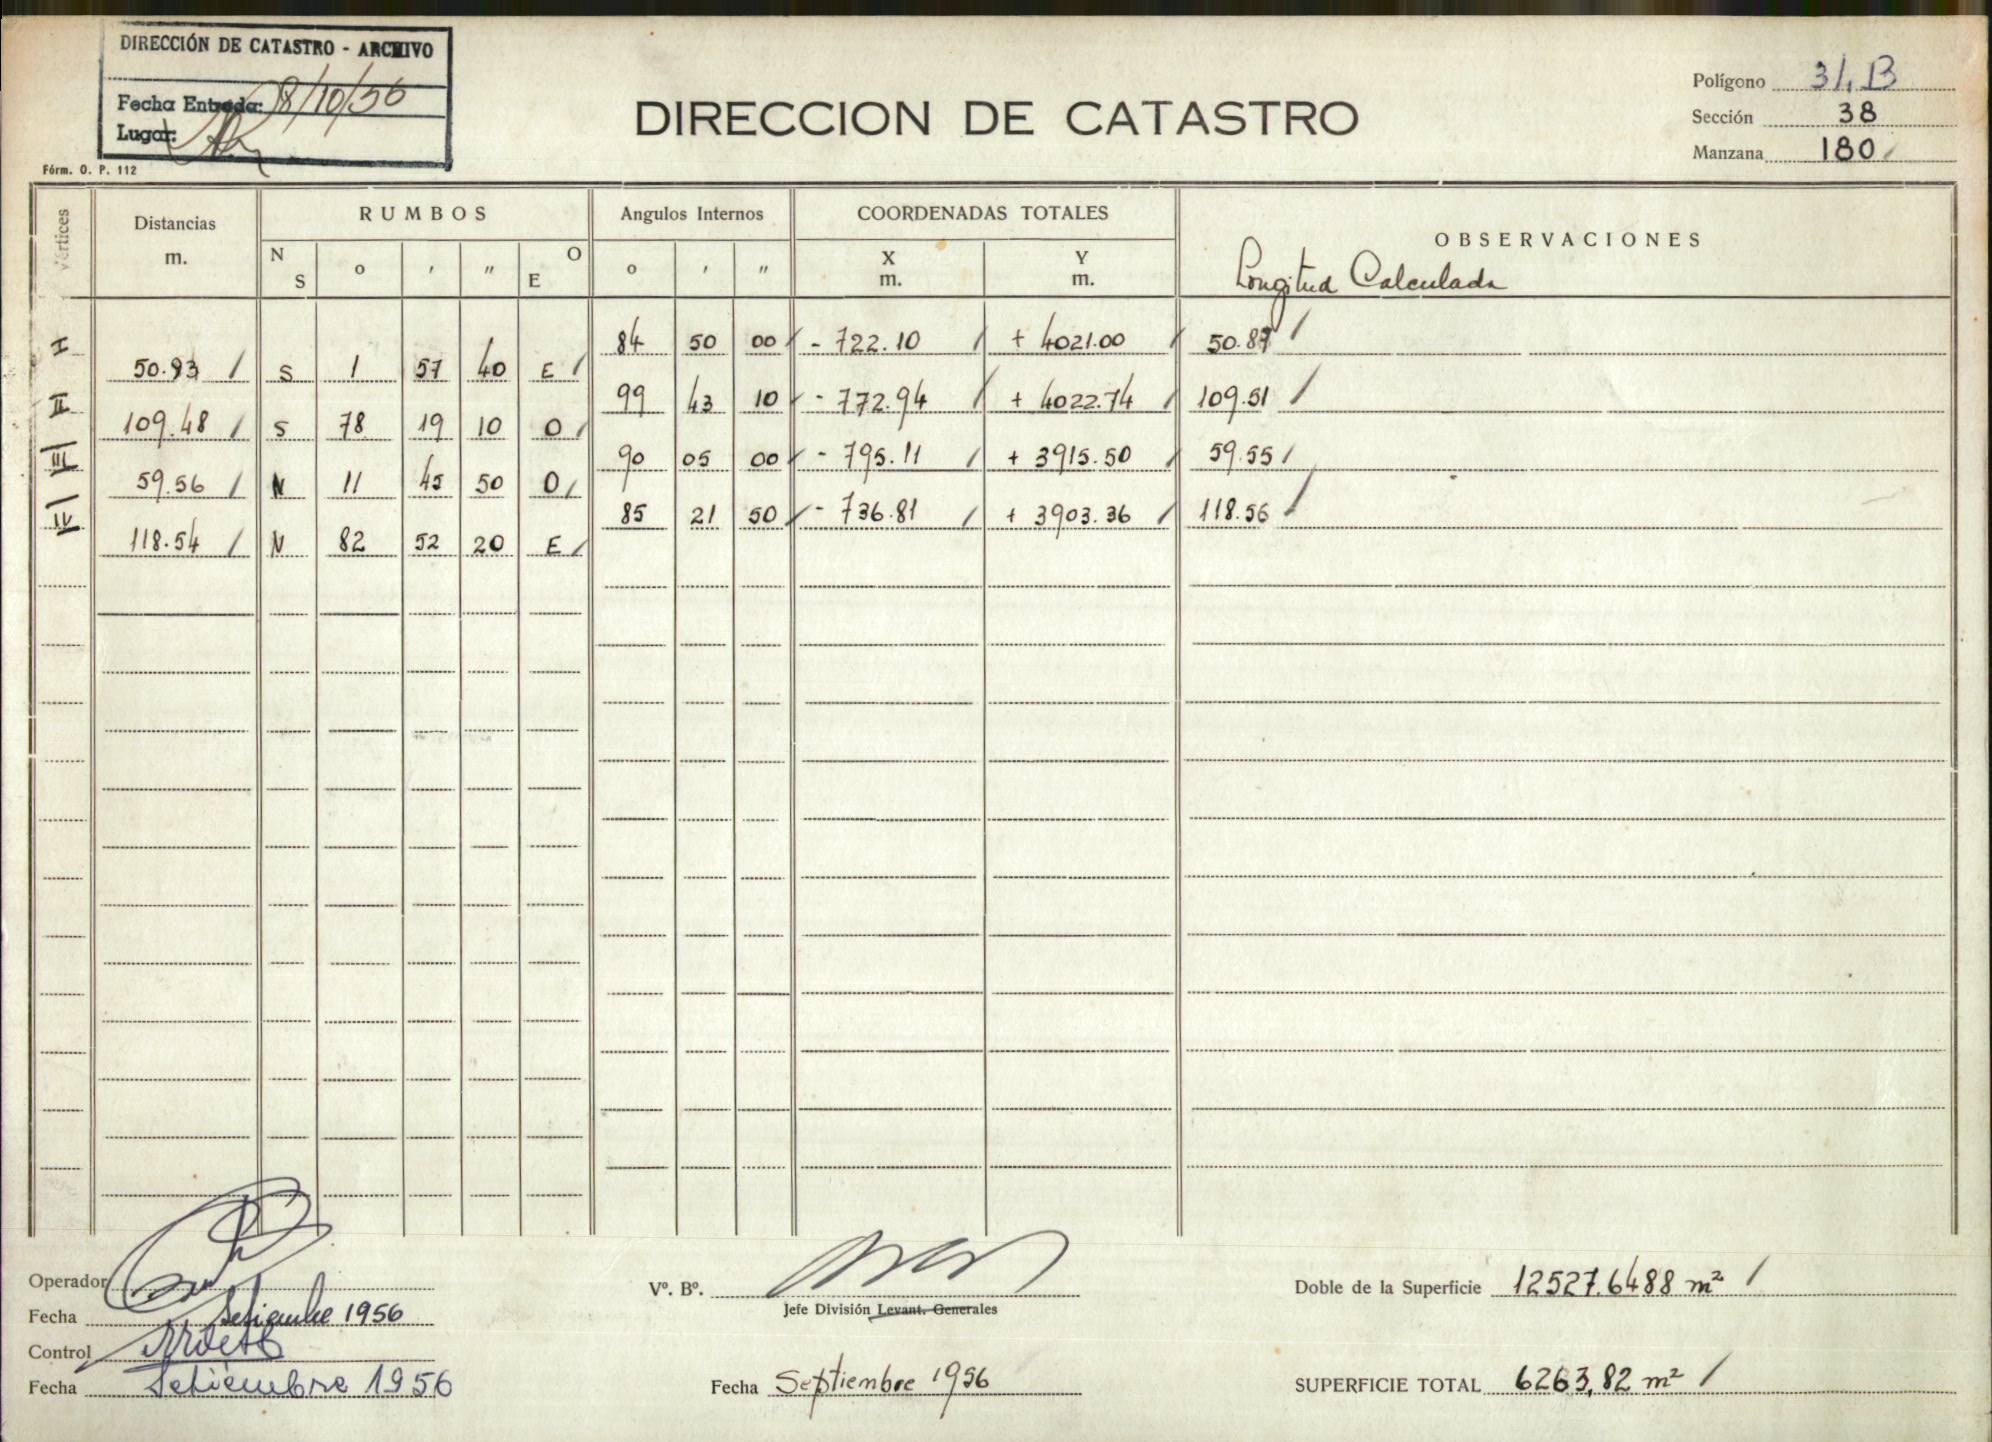 DIRECCIÓN DE CATASTRO - ARCHIVO
Fecha Entrada: 8/10/56
Lugar:
Fórm. O. P. 112
DIRECCION DE CATASTRO
Polígono 31, B
Sección 38
Manzana 180
Vértices Distancias m. RUMBOS N S o ' " O E Angulos Internos o ' " COORDENADAS TOTALES X m. Y m. OBSERVACIONES
Longitud Calculada
I 84 50 00 - 722.10 + 4021.00 50.87
50.93 S 1 57 40 E
II 99 43 10 - 772.94 + 4022.74 109.51
109.48 S 78 19 10 O
III 90 05 00 - 795.11 + 3915.50 59.55
59.56 N 11 45 50 O
IV 85 21 50 - 736.81 + 3903.36 118.56
118.54 N 82 52 20 E
Operador
Fecha Setiembre 1956
Control
Fecha Setiembre 1956
Vº. Bº.
Jefe División Levant. Generales
Fecha Septiembre 1956
Doble de la Superficie 12527.6488 m²
SUPERFICIE TOTAL 6263,82 m²